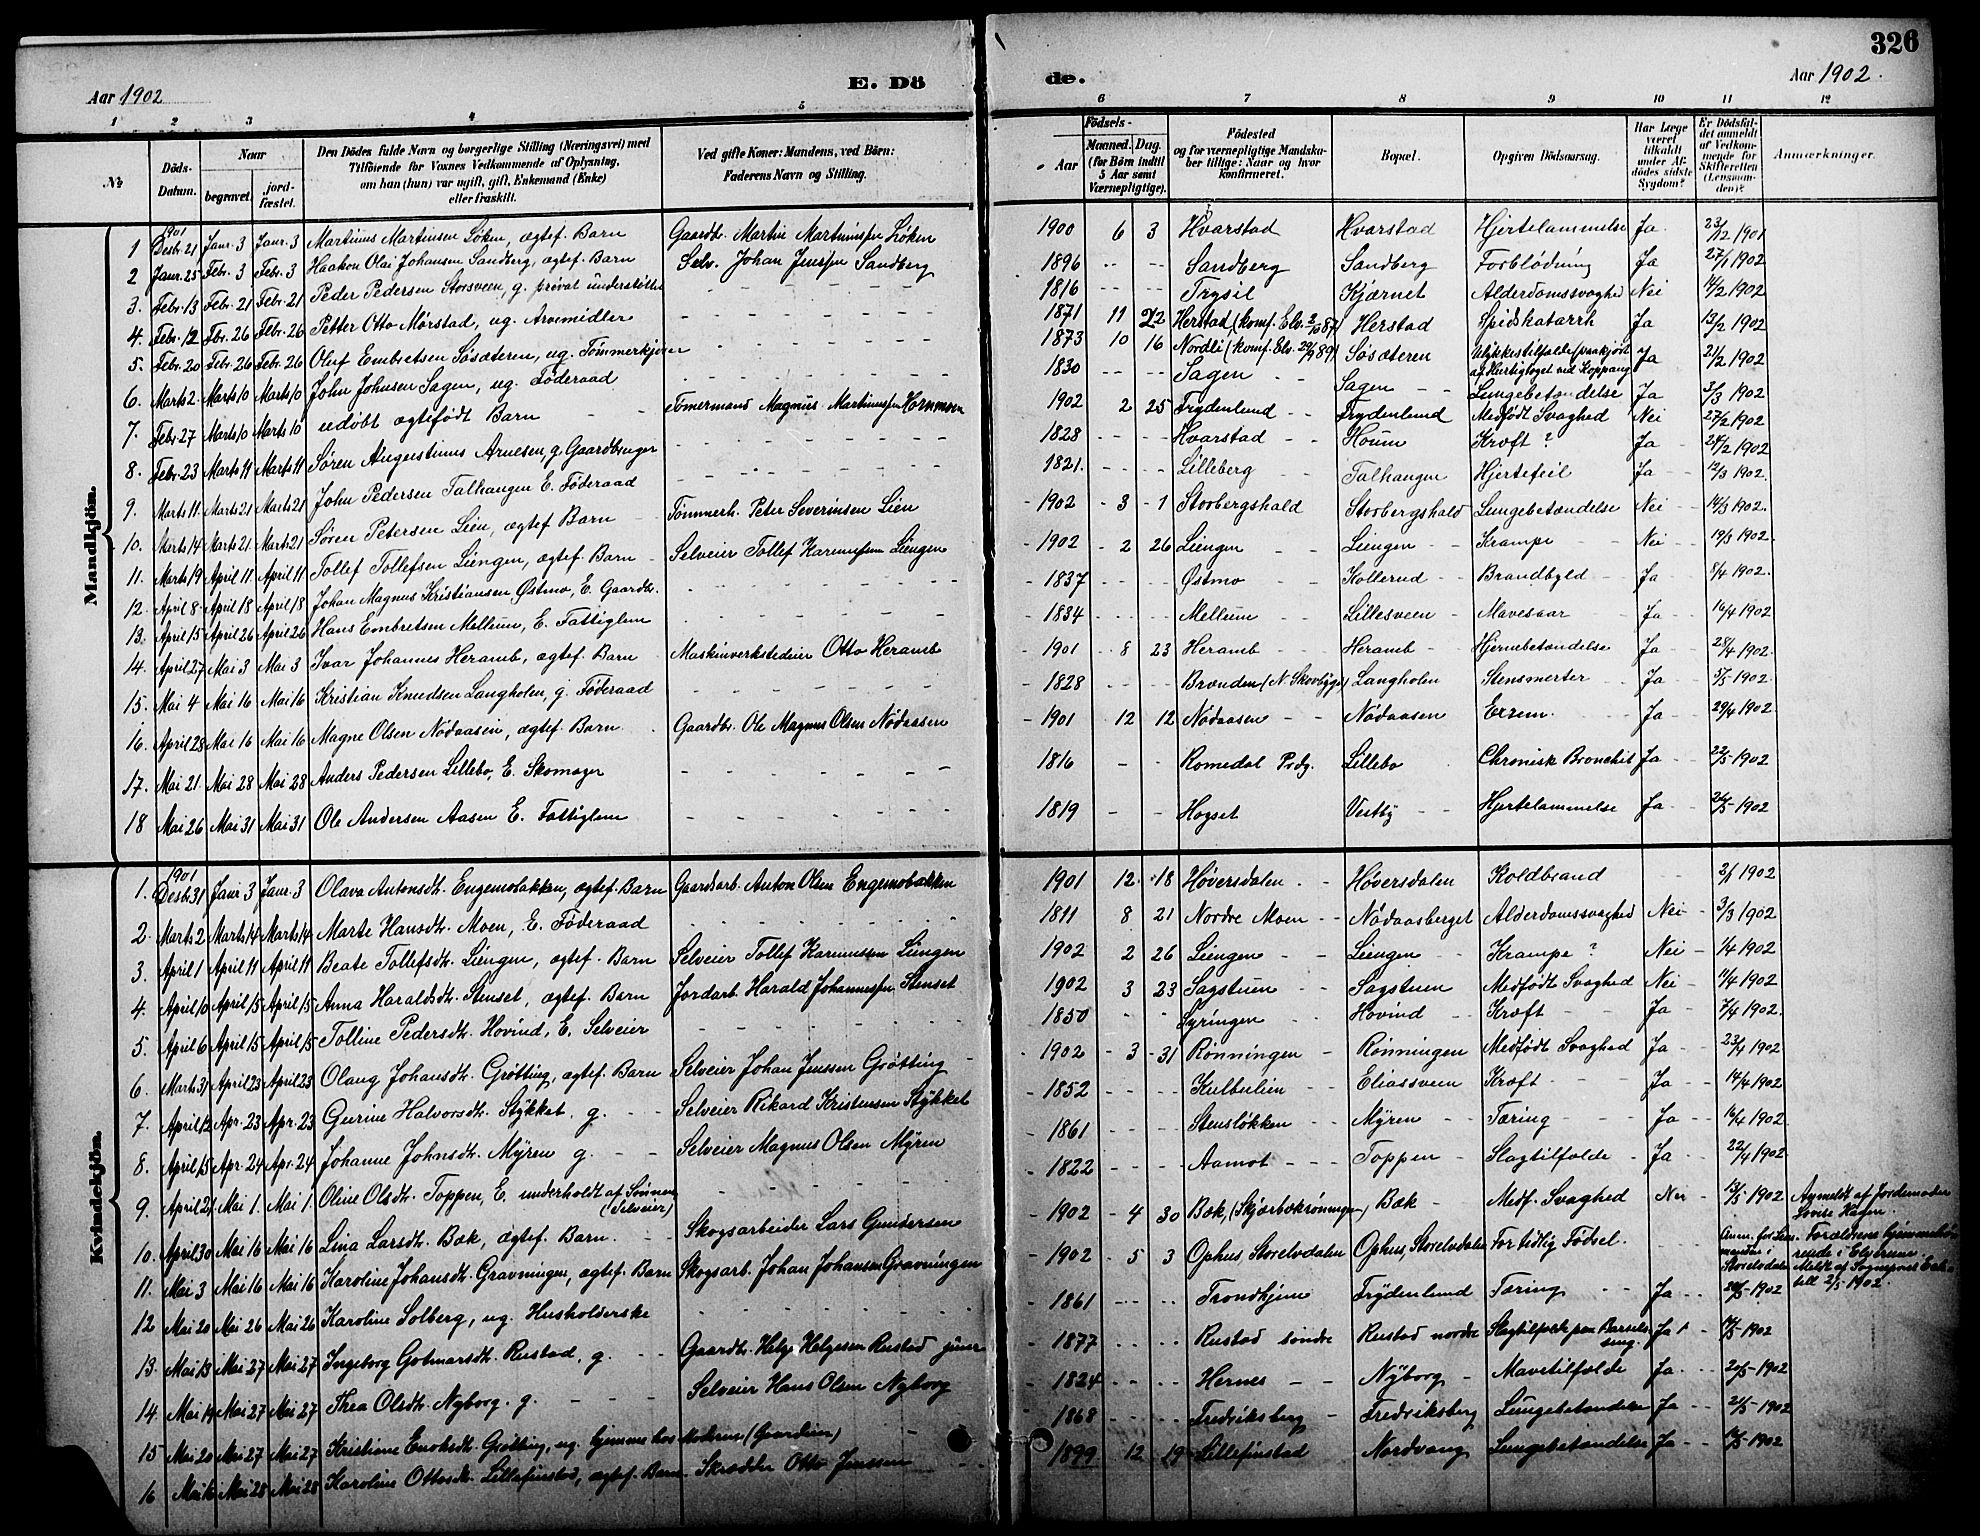 326
Aar 1902
E. Dö
de.
Aar 1902.
1 2 3 4 5
6 7 8 9 10 11 12
№
Döds-Datum.
Naar
begravet.
jordfæstet.
Den Dödes fulde Navn og borgerlige Stilling (Næringsvei) med
Tilföiende for Voxnes Vedkommende af Oplysning,
om han (hun) var ugift, gift, Enkemand (Enke)
eller fraskilt.
Ved gifte Koner: Mandens, ved Börn:
Faderens Navn og Stilling.
Födsels-
Aar
Maaned. Dag.
(for Börn indtil
5 Aar samt
Værnepligtige).
Födested
og for værnepligtige Mandskaber tillige: Naar og hvor
konfirmeret.
Bopæl.
Opgiven Dödsaarsag.
Har Læge
været
tilkaldt
under Afdödes sidste
Sygdom?
Er Dödsfaldet anmeldt
af Vedkommende for
Skifteretten
(Lensmanden)?
Anmærkninger.
Mandkjön.
1 1901 Desbr. 21 Janr. 3 Janr. 3 Martinus Martinsen Løken, ægtef. Barn Gaardbr. Martin Martinussen Løken 1900 6 3 Hvarstad Hvarstad Hjertelammelse Ja 23/12 1901
2 Janr. 25 Febr. 3 Febr. 3 Haakon Olai Johansen Sandberg, ægtef. Barn Selv. Johan Jenssen Sandberg 1896 Sandberg Sandberg Forblødning Ja 27/1 1902
3. Febr. 13 Febr. 21 Febr. 21 Peder Pedersen Storsveen, g. privat understøttet 1816 Trysil Kjærnet Alderdomssvaghed Nei 14/2 1902
4. Febr. 12 Febr. 26 Febr. 26 Petter Otto Mørstad, ug. Arvemidler 1871 11 22 Herstad (konf. Elv. 87) Herstad Spidskatarrh Ja 13/2 1902
5. Febr. 20 Febr. 26 Febr. 26 Oluf Embretsen Søsæteren, ug. Tømmerkjører 1873 10 16 Nordli (konf. Elv. 29/9 89) Søsæteren Ulykkestilfælde (paakjørt af Hurtigtoget ved Koppang) Ja 21/2 1902
6. Marts 2. Marts 10 Marts 10 John Johnsen Sagen, ug. Føderaad 1830 Sagen Sagen Lungebetændelse Ja 3/3 1902
7. Febr. 27 Marts 10 Marts 10 udøbt ægtefødt Barn Tømermand Magnus Martinussen Hornmoen 1902 2 25 Frydenlund Frydenlund Medfødt Svaghed Nei 27/2 1902
8. Febr. 23 Marts 11 Marts 11 Søren Augustinus Arnesen, g. Gaardbruger 1828 Hvarstad Houm Kræft? Ja 24/2 1902
9. Marts 11. Marts 21 Marts 21 John Pedersen Talhaugen E. Føderaad 1821. Lilleberg Talhaugen Hjertefeil Ja 12/3 1902.
10. Marts 14 Marts 21 Marts 21 Søren Petersen Lien, ægtef. Barn Tømmerh. Peter Severinsen Lien 1902 3 1 Storbergshald Storbergshald Lungebetændelse Nei 14/3 1902.
11. Marts 19 April 11 April 11 Tollef Tollefsen Liengen, ægtef. Barn Selveier Tollef Karinussen Liengen 1902 2 26 Liengen Liengen Krampe Nei 19/3 1902.
12. April 8 April 18 April 18 Johan Magnus Kristiansen Østmo, E. Gaardbr. 1837 Østmo Kollerud Brandbyld Ja 8/4 1902.
13. April 15 April 26 April 26 Hans Embretsen Mellum, E. Fattiglem 1834 Mellum Lillesveen Mavesaar Ja 16/4 1902
14. April 27 Mai 3 Mai 3 Ivar Johannes Heramb, ægtef. Barn Maskinverkstedeier Otto Heramb 1901 8 23 Heramb Heramb Hjernebetændelse Ja 28/4 1902.
15. Mai 4 Mai 16 Mai 16 Kristian Knudsen Langholen, g. Føderaad 1828 Brænden (N. Skovbygd) Langholen Stensmerter Ja 5/5 1902.
16. April 28 Mai 16 Mai 16 Magne Olsen Nødaasen, ægtef. Barn Gaardbr. Ole Magnus Olsen Nødaasen 1901 12 12 Nødaasen Nødaasen Exzem. Ja 29/4 1902.
17. Mai 21 Mai 28 Mai 28 Anders Pedersen Lillebo, E. Skomager 1816 Romedal Prdg. Lillebo Chronisk Bronchit Ja 22/5 1902
18 Mai 26 Mai 31 Mai 31 Ole Andersen Aasen E. Fattiglem 1819 Hogset Vestby Hjertelammelse Ja 26/5 1902
Kvindekjön.
1. 1901 Desbr. 31 Janr. 3 Janr. 3 Olava Antonsdtr. Engemobakken, ægtef. Barn Gaardarb. Anton Olsen Engemobakken 1901 12 18 Høversdalen Høversdalen Koldbrand 3/1 1902
2. Marts 2 Marts 14 Marts 14 Marte Hansdtr. Moen, E. Føderaad 1811 8 21 Nordre Moen Nødaasberget Alderdomssvaghed Nei 3/3 1902
3. April 1 April 11 April 11 Beate Tollefsdtr. Liengen, ægtef. Barn Selveier Tollef Karinussen Liengen 1902 2 26 Liengen Liengen Krampe? Nei 1/4 1902
4. April 10 April 15 April 15 Anna Haraldsdtr. Stenset, ægtef. Barn Jordarb. Harald Johannessen Stenset 1902 3 23 Sagstuen Sagstuen Medfødt Svaghed Nei 11/4 1902
5. April 6 April 15 April 15 Tolline Pedersdtr. Hovind, E. Selveier 1850 Syringen Hovind Kræft Ja 7/4 1902.
6. Marts 31 April 23 April 23 Olaug Johansdtr. Grøtting, ægtef. Barn Selveier Johan Jenssen Grøtting 1902 3 31 Rønningen Rønningen Medfødt Svaghed Ja 23/4 1902
7. April 12 Apr. 23 Apr. 23 Gurine Halvorsdtr. Stykket, g. Selveier Rikard Kristensen Stykket 1852 Kulbulien Eliassveen Kræft Ja 14/4 1902
8. April 15 Apr. 24 Apr. 24 Johanne Johnsdtr. Myren g. Selveier Magnus Olsen Myren 1861 Stensløkken Myren Tæring Ja 16/4 1902
9. April 21 Mai 1. Mai 1. Oline Olsdtr. Toppen, E. underholdt af Sønnen (Selveier) 1822 Aamot Toppen Slagtilfælde Ja 22/4 1902
10. April 30 Mai 16 Mai 16 Lina Larsdtr. Bæk, ægtef. Barn. Skogsarbeider Lars Gundersen 1902 4 30 Bæk, (Skjærbækrøningen) Bæk Medf. Svaghed Nei 1902 Anmeldt af Jordemoder Lovise Hagen.
11. Mai 3 Mai 16 Mai 16 Karoline Johansdtr. Gravningen, ægtef. Barn Skogsarb. Johan Johansen Gravningen 1902 5 3 Ophus, Storelvdalen Ophus, Storelvdalen For tidlig Fødsel. Anm. for Lensmanden i Storelvdalen Forældrene hjemmehørende i Elverum. Meldt af Sognepr. 2/5 1902.
12 Mai 20 Mai 26 Mai 26 Karoline Solberg, ug. Husholderske 1861 Trondhjem Frydenlund Tæring Ja 20/5 1902
13. Mai 13 Mai 27 Mai 27 Ingeborg Gotmarsdtr. Rustad, g. Gaardbr. Helge Helgesen Rustad junr. 1877 Rustad søndre Rustad nordre Slagtilfælde paa Barselseng Ja 1902
14. Mai 19 Mai 27 Mai 27 Thea Olsdtr. Nyborg. g. Selveier Hans Olsen Nyborg 1824 Hernes Nyborg Mavetilfælde Ja 20/5 1902
15 Mai 20 Mai 27 Mai 27 Kristiane Enoksdtr. Grøtting, ug. hjemme hos Moderen (Gaardeier) 1868 Fredriksberg Fredriksberg Lungebetændelse Ja 21/5 1902
16 Mai Mai 28 Mai 28 Karoline Ottosdtr. Lillefinstad, ægtef. Barn Skrædder Otto Jenssen 1899 12 19 Lillefinstad Nordvang Lungebetændelse Ja 1902